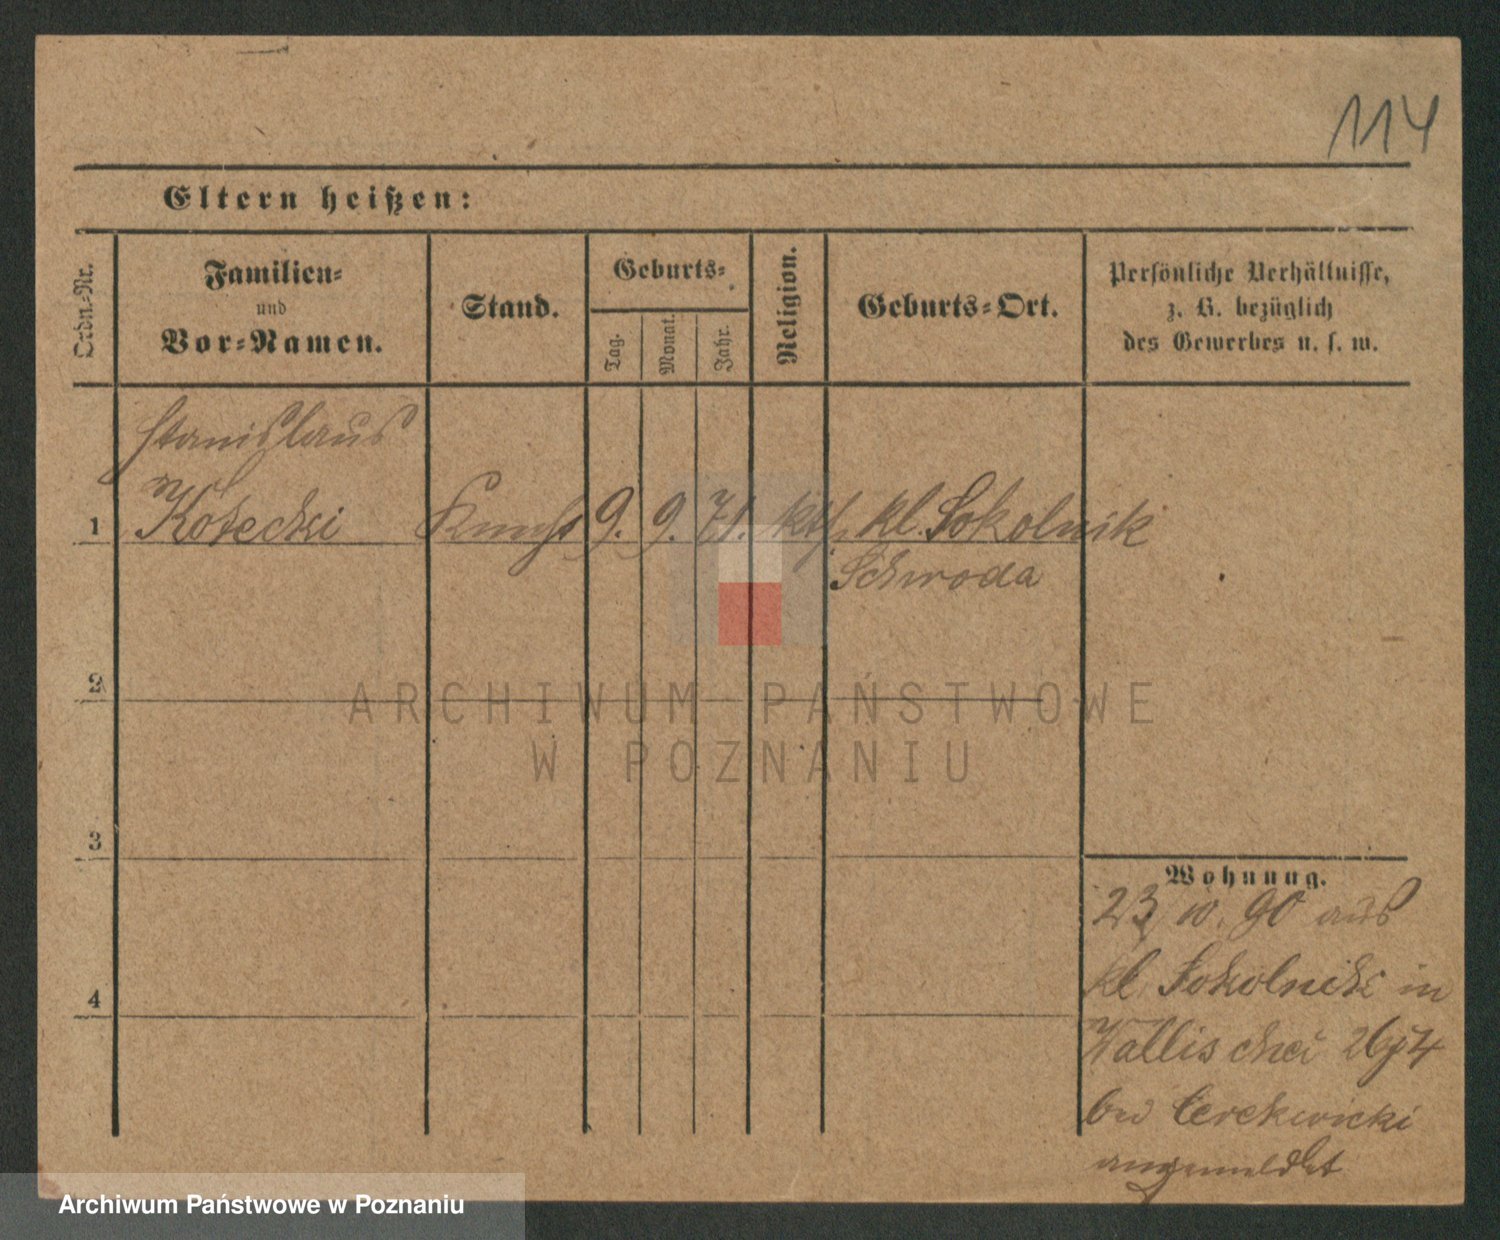 114
Eltern heißen:
Ordn.-Nr.
Familien-
und
Vor-Namen.
Stand.
Geburts-
Tag.
Monat.
Jahr.
Religion.
Geburts-Ort.
Persönliche Verhältnisse,
z. B. bezüglich
des Gewerbes u. s. w.
Stanislaus
1 9. 9. 71. kth. kl. Sokolnik
Schroda
2
3
4
Wohnung.
23/10. 90 aus
kl. Sokolniki in
Wallischei
bei Cerekwicki
angemeldet
ARCHIWUM PAŃSTWOWE
W POZNANIU
Archiwum Państwowe w Poznaniu